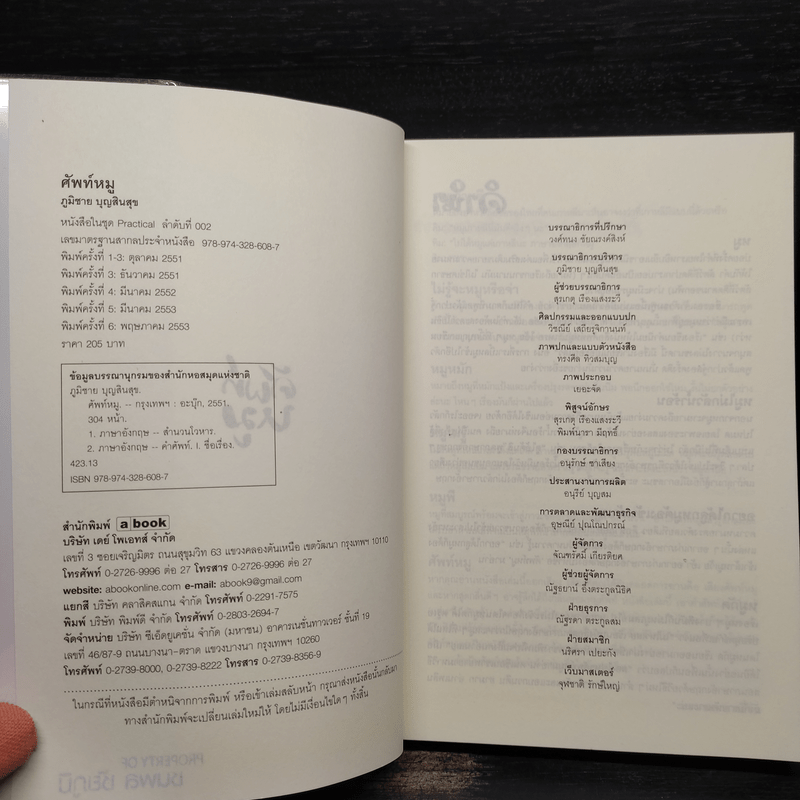 ศัพท์หมู
ภูมิชาย บุญสินสุข
หนังสือในชุด Practical ลำดับที่ 002
เลขมาตรฐานสากลประจำหนังสือ 978-974-328-608-7
พิมพ์ครั้งที่ 1-3: ตุลาคม 2551
พิมพ์ครั้งที่ 3: ธันวาคม 2551
พิมพ์ครั้งที่ 4: มีนาคม 2552
พิมพ์ครั้งที่ 5: มีนาคม 2553
พิมพ์ครั้งที่ 6: พฤษภาคม 2553
ราคา 205 บาท
ข้อมูลบรรณานุกรมของสำนักหอสมุดแห่งชาติ
ภูมิชาย บุญสินสุข.
ศัพท์หมู. -- กรุงเทพฯ : อะบุ๊ก, 2551.
304 หน้า.
1. ภาษาอังกฤษ -- สำนวนโวหาร.
2. ภาษาอังกฤษ -- คำศัพท์. I. ชื่อเรื่อง.
423.13
ISBN 978-974-328-608-7
สำนักพิมพ์ a book
บริษัท เดย์ โพเอทส์ จำกัด
เลขที่ 3 ซอยเจริญมิตร ถนนสุขุมวิท 63 แขวงคลองตันเหนือ เขตวัฒนา กรุงเทพฯ 10110
โทรศัพท์ 0-2726-9996 ต่อ 27 โทรสาร 0-2726-9996 ต่อ 27
website: abookonline.com e-mail: abook9@gmail.com
แยกสี บริษัท คลาสิคสแกน จำกัด โทรศัพท์ 0-2291-7575
พิมพ์ บริษัท พิมพ์ดี จำกัด โทรศัพท์ 0-2803-2694-7
จัดจำหน่าย บริษัท ซีเอ็ดยูเคชั่น จำกัด (มหาชน) อาคารเนชั่นทาวเวอร์ ชั้นที่ 19
เลขที่ 46/87-9 ถนนบางนา-ตราด แขวงบางนา กรุงเทพฯ 10260
โทรศัพท์ 0-2739-8000, 0-2739-8222 โทรสาร 0-2739-8356-9
ในกรณีที่หนังสือมีตำหนิจากการพิมพ์ หรือเข้าเล่มสลับหน้า กรุณาส่งหนังสือนั้นกลับมา
ทางสำนักพิมพ์จะเปลี่ยนเล่มใหม่ให้ โดยไม่มีเงื่อนไขใดๆ ทั้งสิ้น
บรรณาธิการที่ปรึกษา
วงศ์ทนง ชัยณรงค์สิงห์
บรรณาธิการบริหาร
ภูมิชาย บุญสินสุข
ผู้ช่วยบรรณาธิการ
สุรเกตุ เรืองแสงระวี
ศิลปกรรมและออกแบบปก
วิชณีย์ เสถียรุจิกานนท์
ภาพปกและแบบตัวหนังสือ
ทรงศีล ทิวสมบุญ
ภาพประกอบ
เยอะจัด
พิสูจน์อักษร
สุรเกตุ เรืองแสงระวี
พิมพ์นารา มีฤทธิ์
กองบรรณาธิการ
อนุรักษ์ ชาเสียง
ประสานงานการผลิต
อนุรีย์ บุญสม
การตลาดและพัฒนาธุรกิจ
อุษณีย์ ปุณโณปกรณ์
ผู้จัดการ
จัณฑรัคมี์ เกียรติยศ
ผู้ช่วยผู้จัดการ
ณัฐธยาน์ อึ้งตระกูลนิธิศ
ฝ่ายธุรการ
ณัฐรดา ตระกูลสม
ฝ่ายสมาชิก
นริศรา เปยะกัง
เว็บมาสเตอร์
จุฬชาติ รักษ์ใหญ่